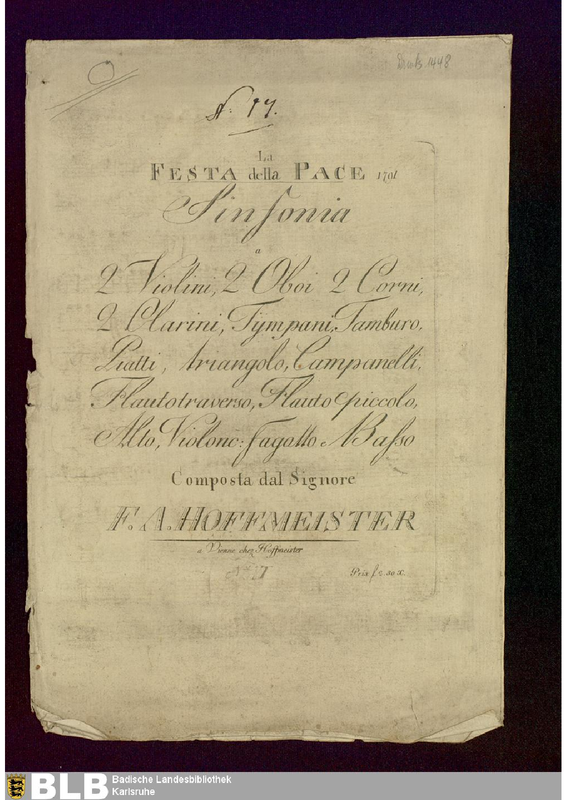 Druck 1448
N. 17.
La
FESTA della PACE 1791
Sinfonia
a
2 Violini, 2 Oboi 2 Corni,
2 Clarini, Tympani, Tamburo,
Piatti, triangolo, Campanelli,
Flautotraverso, Flauto piccolo,
Alto, Violonc: fagotto e Basso
Composta dal Signore
F. A. HOFFMEISTER
a Vienne chez Hoffmeister
Prix f 2. 30 X.
BLB Badische Landesbibliothek
Karlsruhe